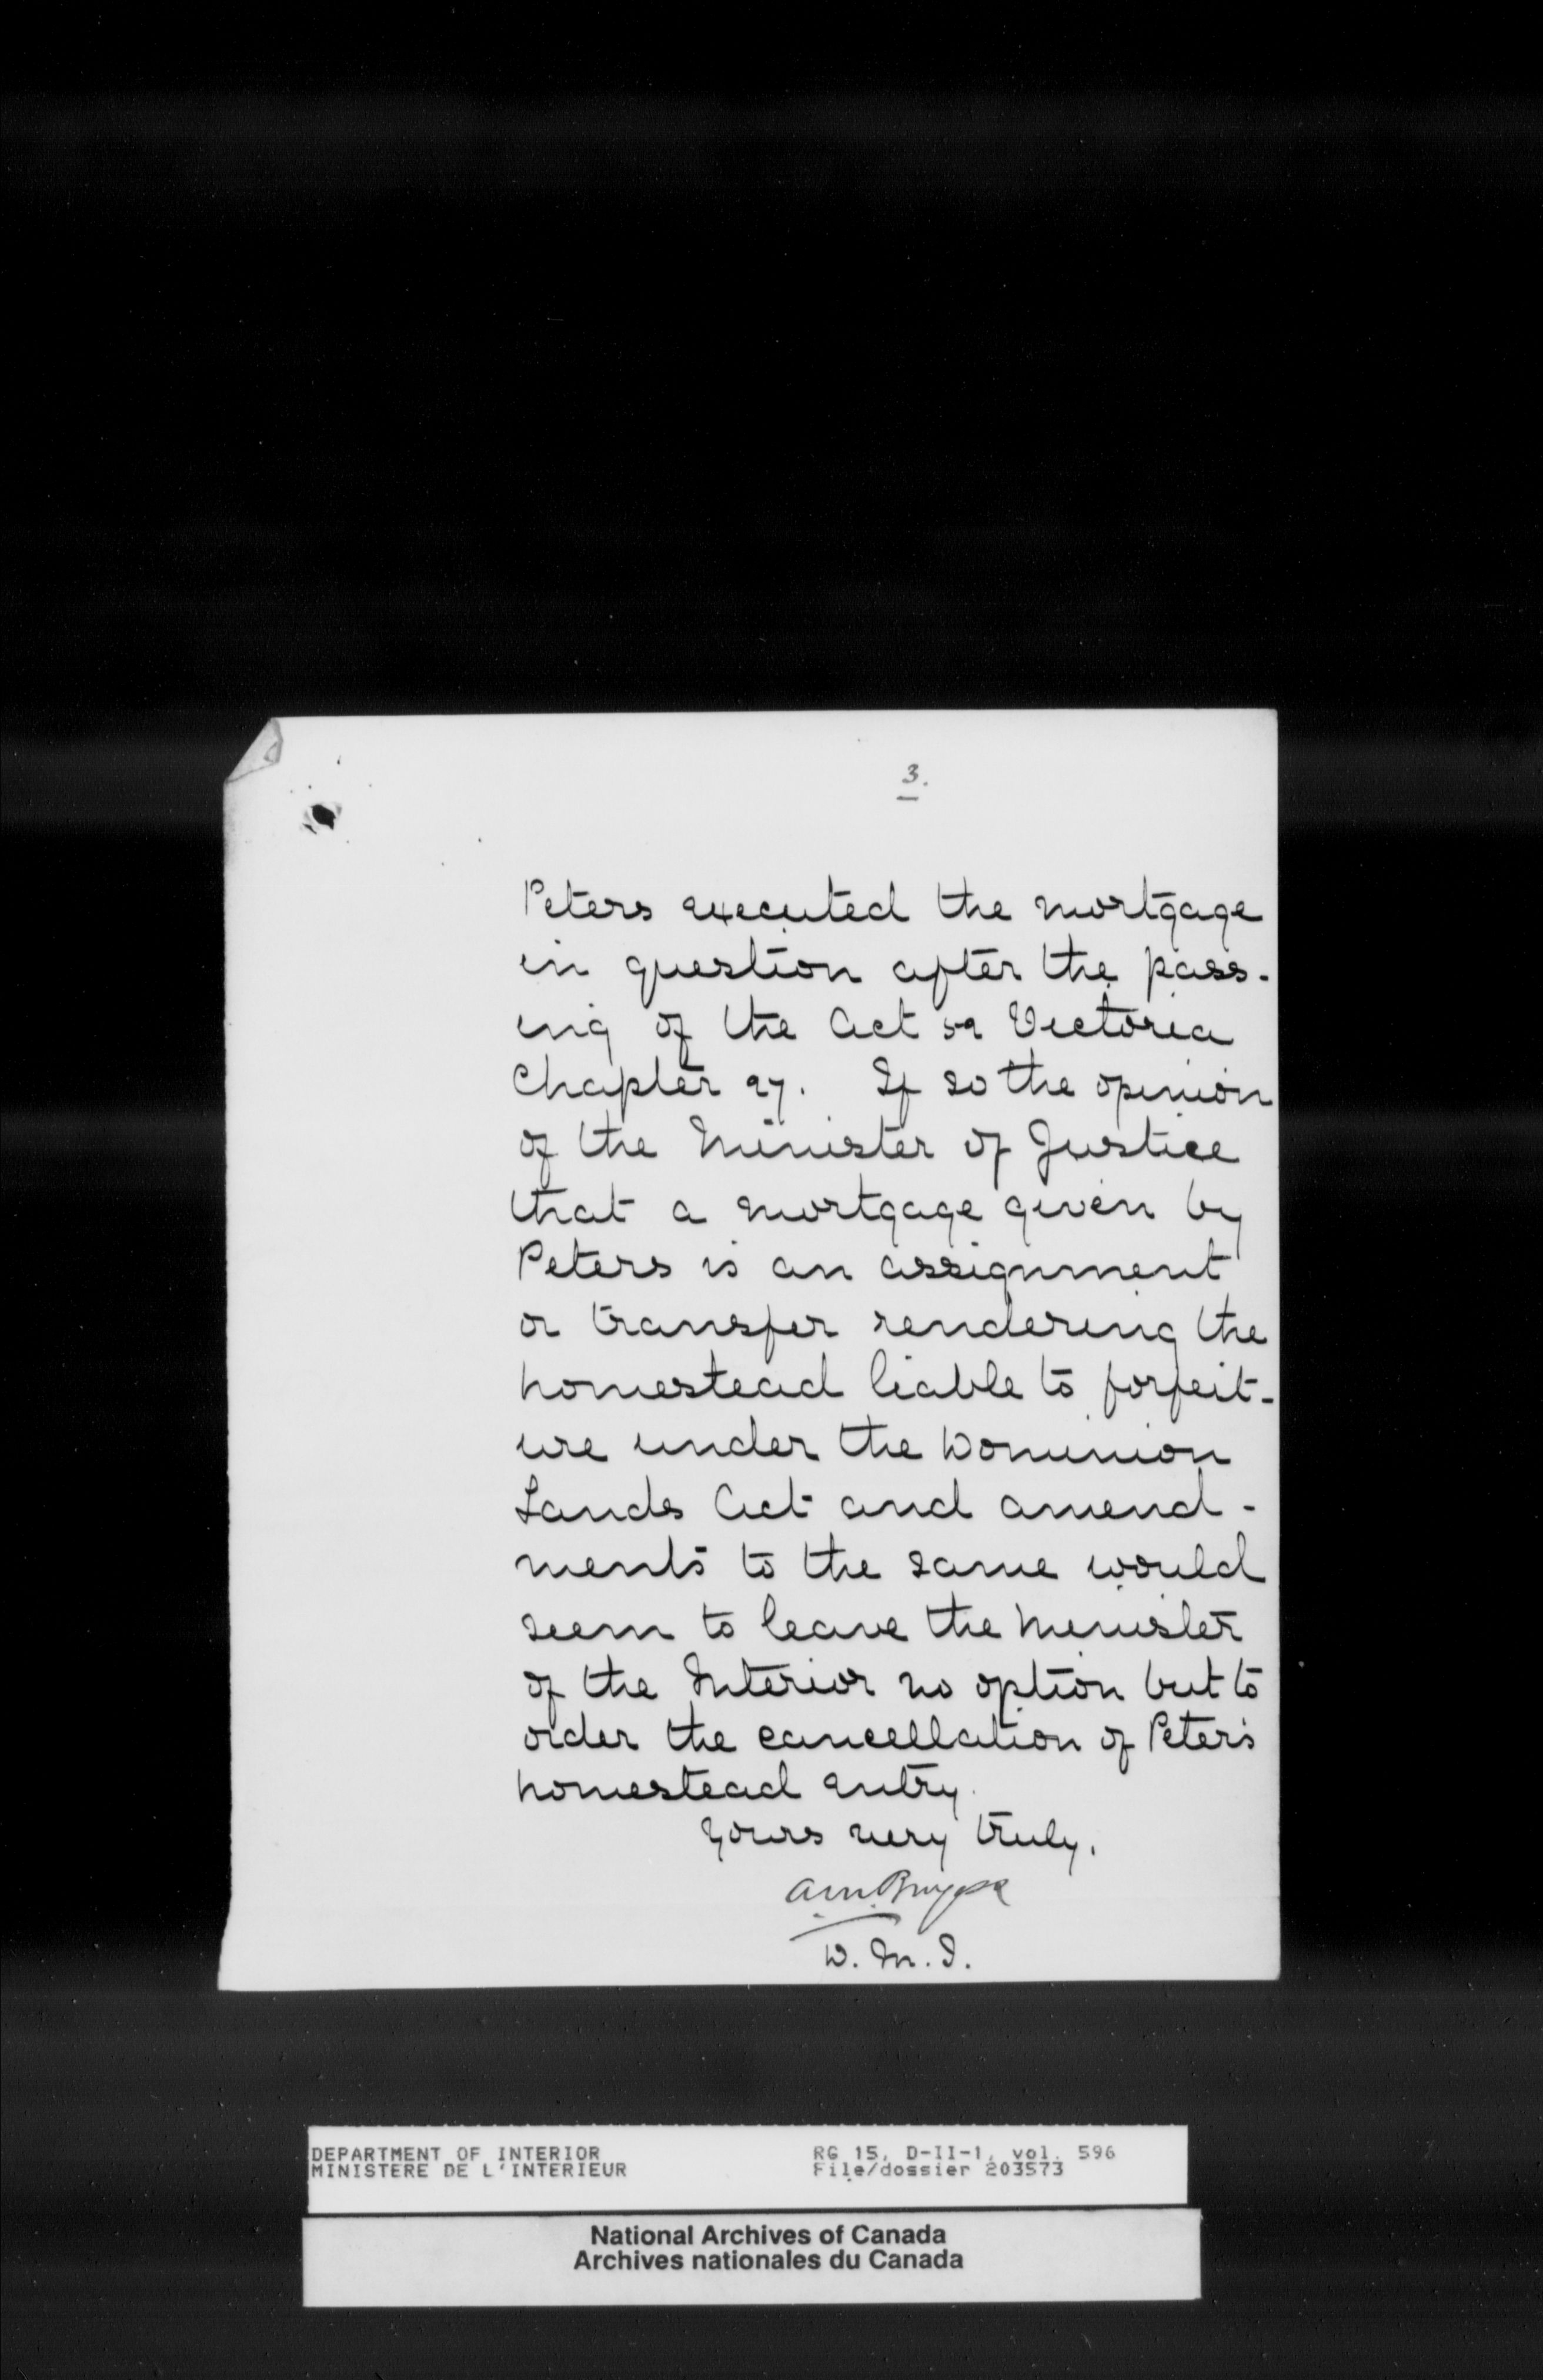 3.
Peters executed the mortgage
in question after the pass-
ing of the Act 52 Victoria
Chapter 27. If so the opinion
of the Minister of Justice
that a mortgage given by
Peters is an assignment
or transfer rendering the
homestead liable to forfeit-
ure under the Dominion
Lands Act and amend-
ments to the same would
seem to leave the Minister
of the Interior no option but to
order the cancellation of Peter's
homestead entry.
Yours very truly,
A M Burgess
D. M. I.
DEPARTMENT OF INTERIOR RG 15, D-II-1, vol. 596
MINISTERE DE L'INTERIEUR File/dossier 203573
National Archives of Canada
Archives nationales du Canada